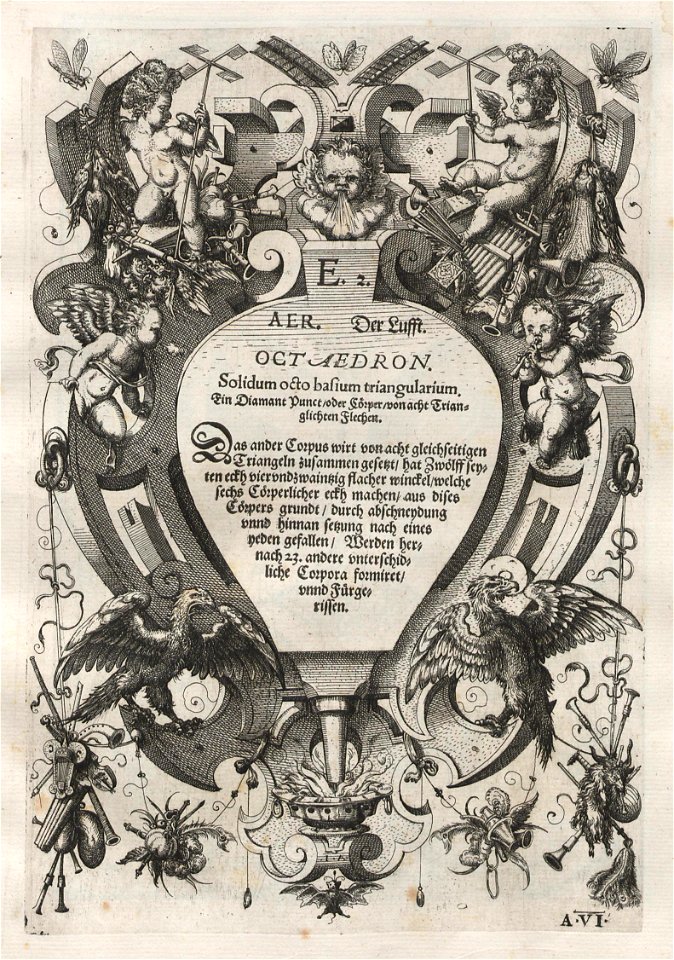 E. 2.
AER. Der Lufft.
OCTAEDRON.
Solidum octo basium triangularium.
Ein Diamant Punct/oder Cörper/von acht Trian-
glichten Flechen.
Das ander Corpus wirt von acht gleichseitigen
Triangeln zusammen gesetzt/ hat Zwölff sey-
ten eckh vierundzwaintzig flacher winckel/welche
sechs Cörperlicher eckh machen/ aus dises
Cörpers grundt/ durch abschneydung
vnnd hinnan setzung nach eines
yeden gefallen/ Werden her-
nach 23. andere vnterschid-
liche Corpora formiret/
vnnd Fürge-
rissen.
A.VI.